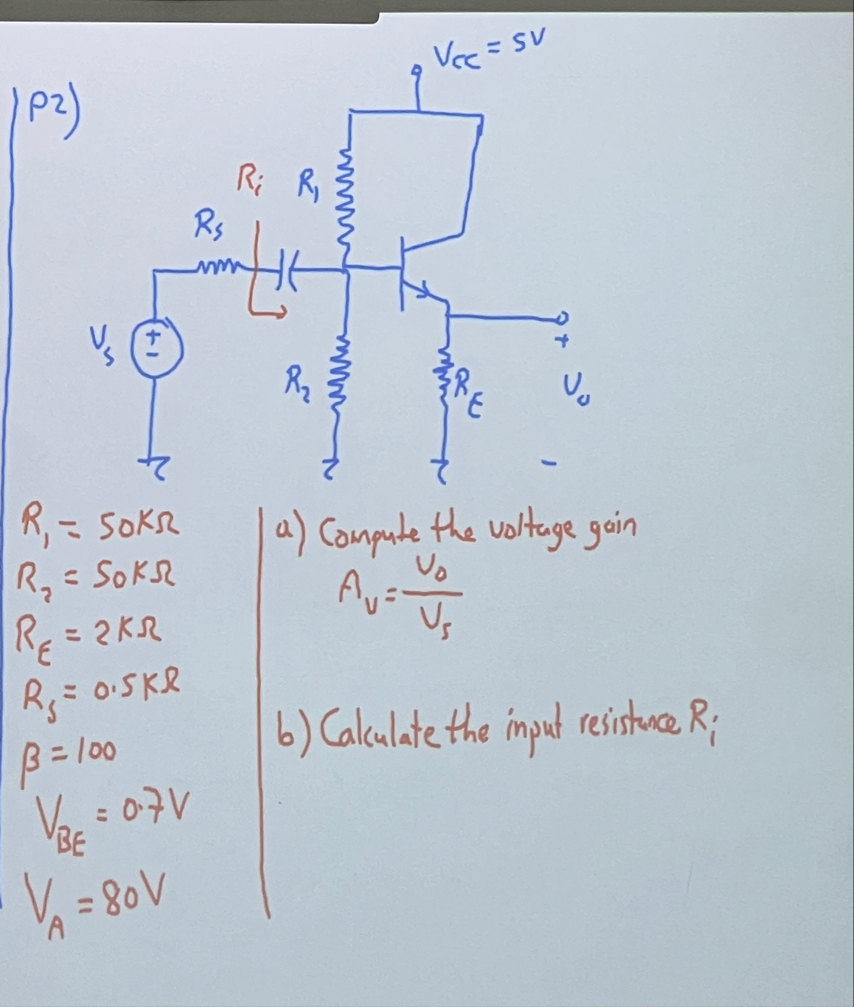 P2)
V_CC = 5V
R_i
R_1
R_s
V_s
+
-
R_2
R_E
+
V_o
-
R_1 = 50KΩ
R_2 = 50KΩ
R_E = 2KΩ
R_s = 0.5KΩ
β = 100
V_BE = 0.7V
V_A = 80V
a) Compute the voltage gain
A_v = V_o / V_s
b) Calculate the input resistance R_i